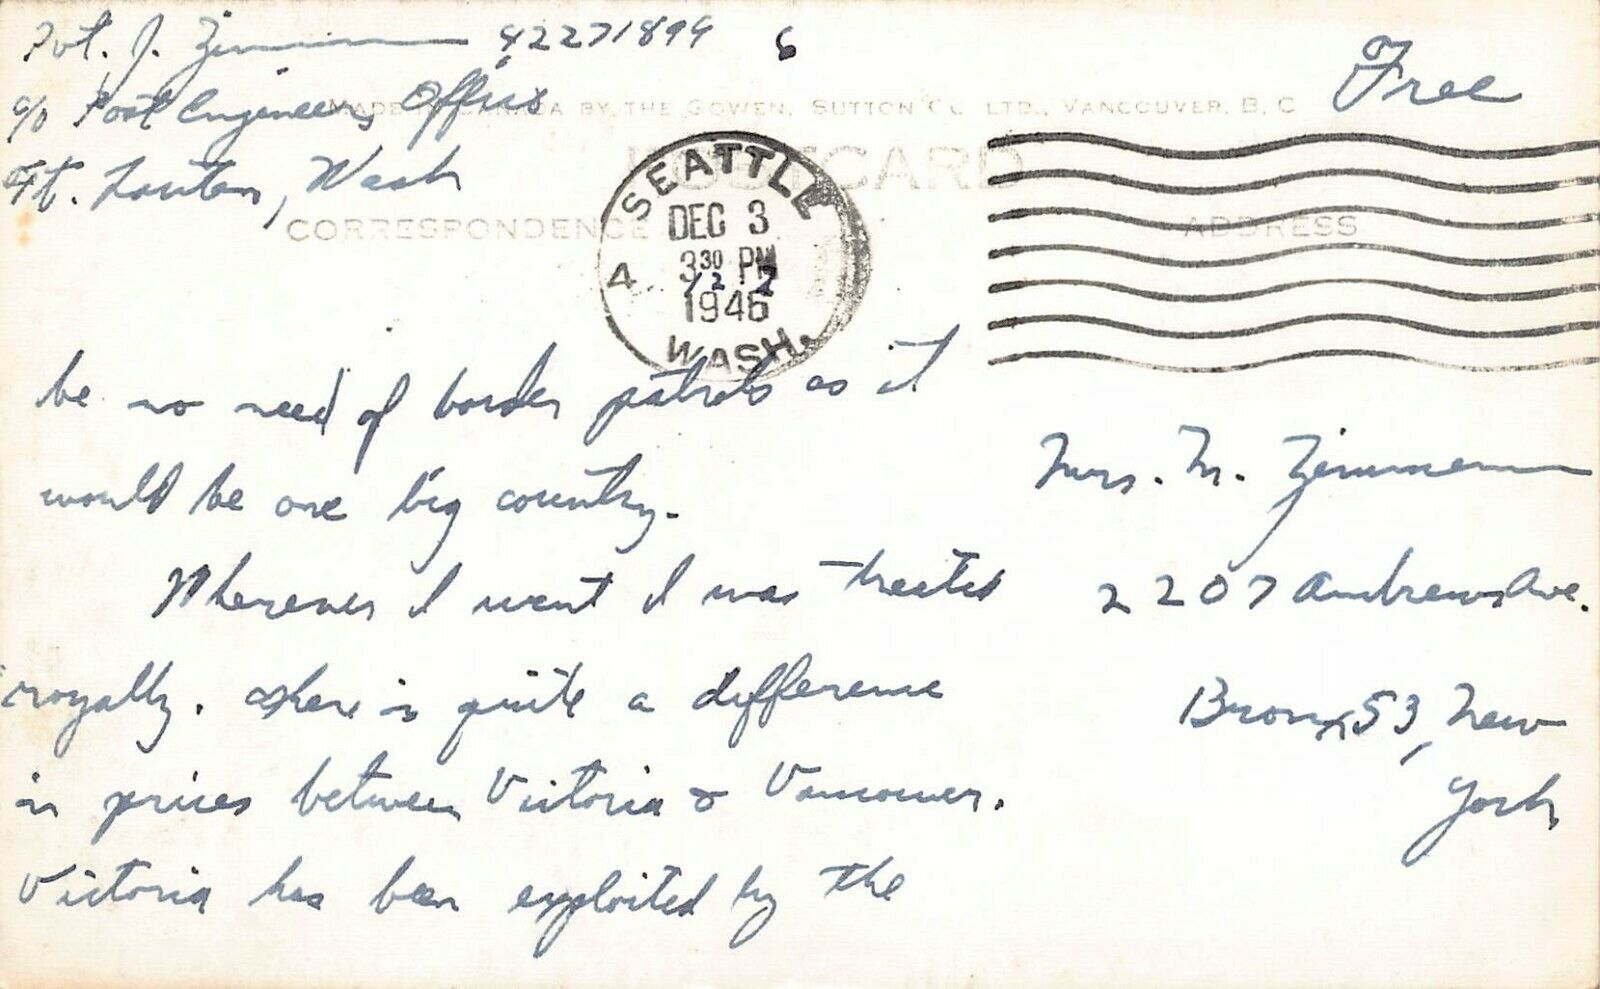 Pvt. J. Zimmerman 42271899 6
c/o Post Engineers Office
Ft. Lawton, Wash
Free
MADE IN CANADA BY THE GOWEN, SUTTON CO. LTD., VANCOUVER, B.C.
POSTCARD
CORRESPONDENCE
ADDRESS
SEATTLE
DEC 3
3 30 PM
4
12 2
1946
WASH.
be no need of border patrols as it
would be one big country.
Wherever I went I was treated
royally. There is quite a difference
in prices between Victoria & Vancouver.
Victoria has been exploited by the
Mrs. M. Zimmerman
2207 Andrews Ave.
Bronx 53, New
York